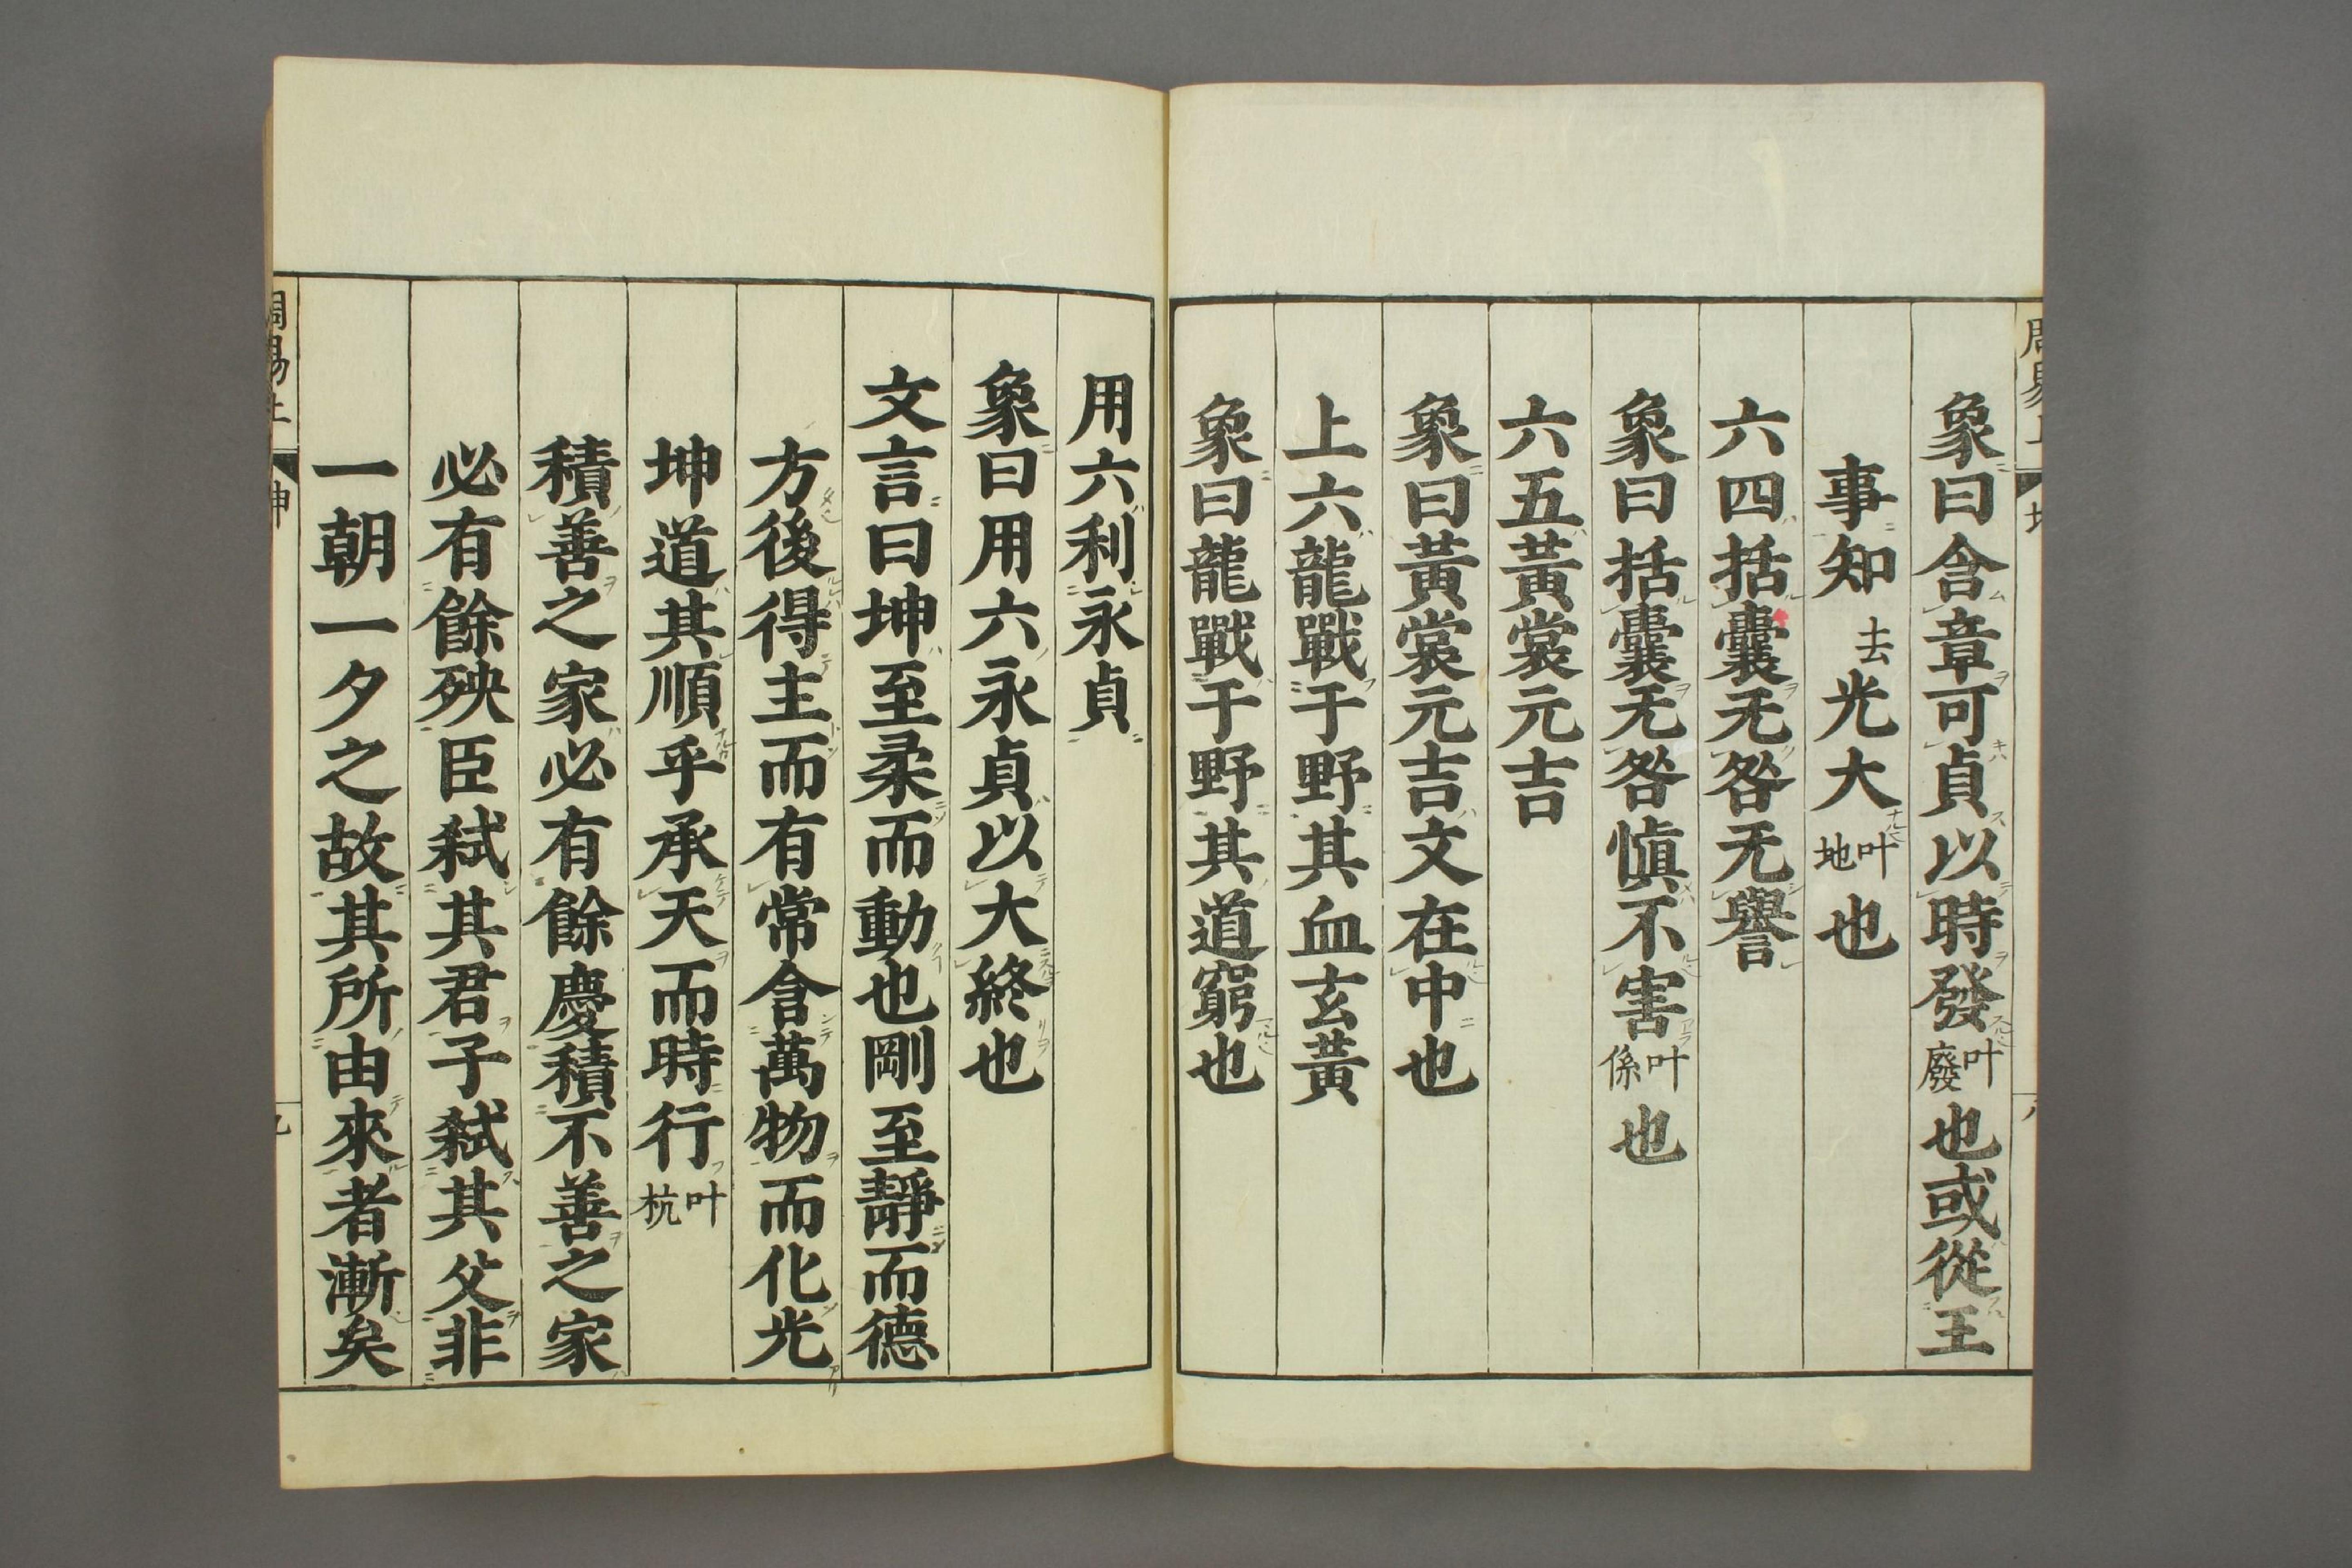 象曰含章可貞以時發叶廢也或從王
事知去光大叶地也
六四括囊无咎无譽
象曰括囊无咎愼不害叶係也
六五黃裳元吉
象曰黃裳元吉文在中也
上六龍戰于野其血玄黃
象曰龍戰于野其道窮也
用六利永貞
象曰用六永貞以大終也
文言曰坤至柔而動也剛至靜而德
方後得主而有常含萬物而化光
坤道其順乎承天而時行叶杭
積善之家必有餘慶積不善之家
必有餘殃臣弒其君子弒其父非
一朝一夕之故其所由來者漸矣
周易上 坤